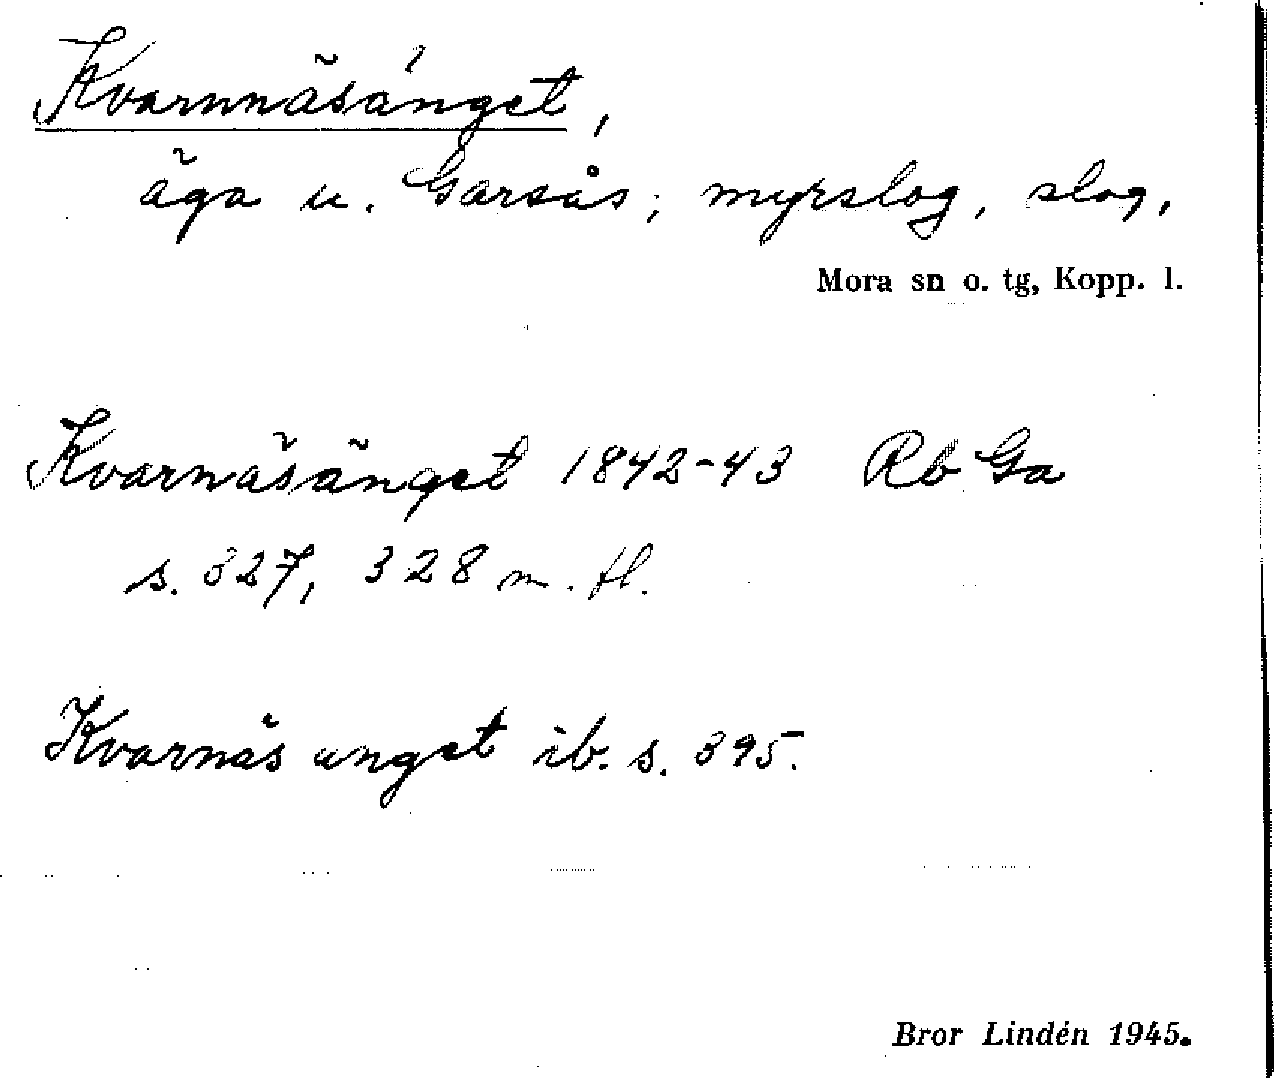 Kvarnnäsänget,
äga u. Garsås; myrslog, slog,
Mora sn o. tg, Kopp. l.
Kvarnäsänget 1842-43 Rb Ga
s. 327, 328 m. fl.
Kvarnäs anget ib. s. 395.
Bror Lindén 1945.